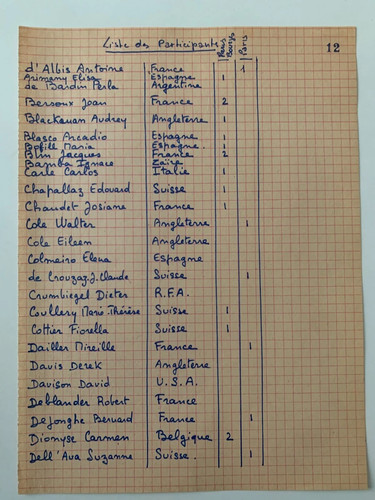 Liste des Participants
Paris
12
d'Albis Antoine France 1
Arimany Elisa Espagne 1
de Bardin Perla Argentine
Bersoux Joan France 2
Blackman Audrey Angleterre 1
Blasco Arcadio Espagne 1
Bofill Maria Espagne. 1
Blin Jacques France 2
Bamba Ignace Zaïre
Carlé Carlos Italie 1
Chapallaz Edouard Suisse 1
Chaudet Josiane France 1
Cole Walter Angleterre 1
Cole Eileen Angleterre
Colmeiro Elena Espagne
de Crouzaz J. Claude Suisse 1
Crumbiegel Dieter R.F.A.
Coullery Marie Thérèse Suisse 1
Cottier Fiorella Suisse 1
Dailler Mireille France 1
Davis Derek Angleterre
Davison David U.S.A.
Deblander Robert France
Dejonghe Bernard France 1
Dionyse Carmen Belgique 2
Dell'Ava Suzanne Suisse. 1